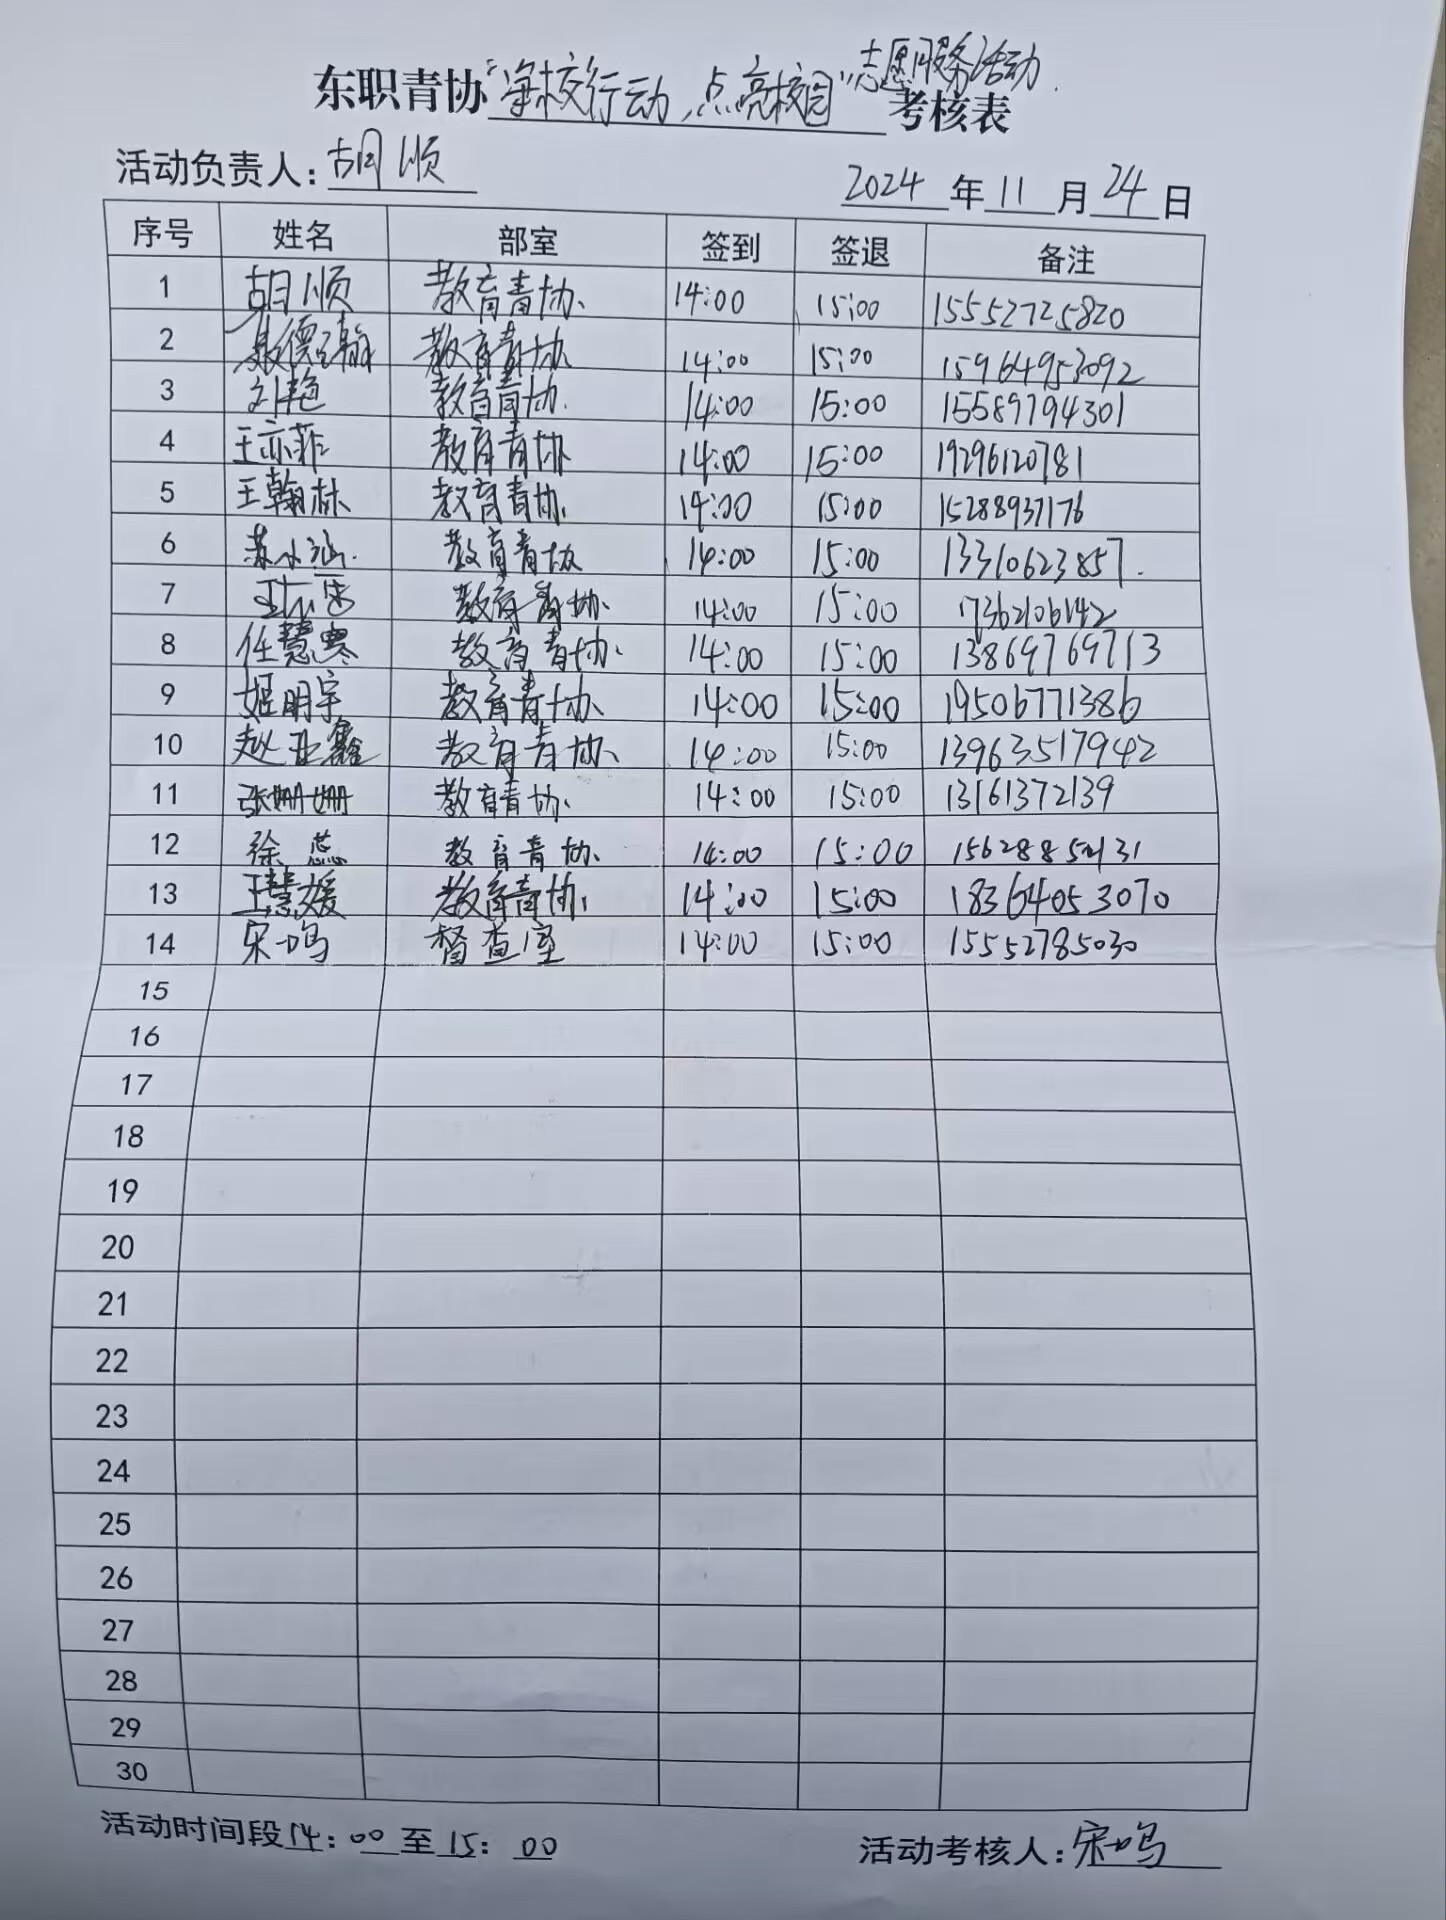 志愿服务活动.
东职青协“净校行动,点亮校园”考核表
活动负责人: 胡顺
2024 年 11 月 24 日
序号 姓名 部室 签到 签退 备注
1 胡顺 教育青协 14:00 15:00 15552725820
2 教育青协 14:00 15:00 15964953092
3 刘艳 教育青协 14:00 15:00 15589794301
4 王亦菲 教育青协 14:00 15:00 19296120781
5 王翰林 教育青协 14:00 15:00 15288937176
6 苏小涵 教育青协 14:00 15:00 13310623857
7 教育青协 14:00 15:00 17362106142
8 任慧 教育青协 14:00 15:00 13869769713
9 姬明宇 教育青协 14:00 15:00 19506771386
10 赵亚鑫 教育青协 14:00 15:00 13963517942
11 张姗姗 教育青协 14:00 15:00 13161372139
12 徐蕊 教育青协 14:00 15:00
13 王慧媛 教育青协 14:00 15:00 18364053070
14 宋一鸣 督查室 14:00 15:00 15552785030
15
16
17
18
19
20
21
22
23
24
25
26
27
28
29
30
活动时间段 14:00 至 15:00 活动考核人: 宋一鸣